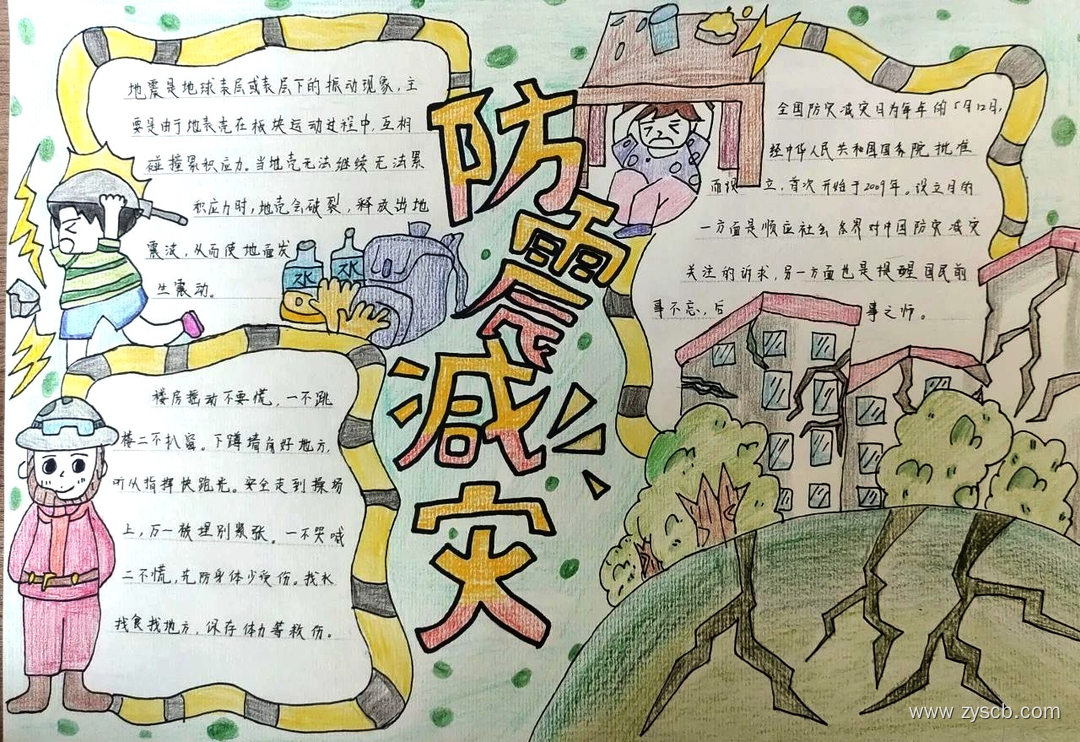 防震减灾
地震是地球表层或表层下的振动现象,主
要是由于地表壳在板块运动过程中,互相
碰撞累积应力。当地壳无法继续无法累
积应力时,地壳会破裂,释放出地
震波,从而使地面发
生震动。
水 水
全国防灾减灾日为每年的5月12日,
经中华人民共和国国务院批准
而设立,首次开始于2009年。设立目的
一方面是顺应社会各界对中国防灾减灾
关注的诉求,另一方面也是提醒国民前
事不忘,后事之师。
楼房摇动不要慌,一不跳
楼二不扒窗。下蹲墙角好地方,
听从指挥快跑光。安全走到操场
上,万一被埋别紧张。一不哭喊
二不慌,先防身体少受伤。找水
找食找地方,保存体力等救伤。
www.zyscb.com